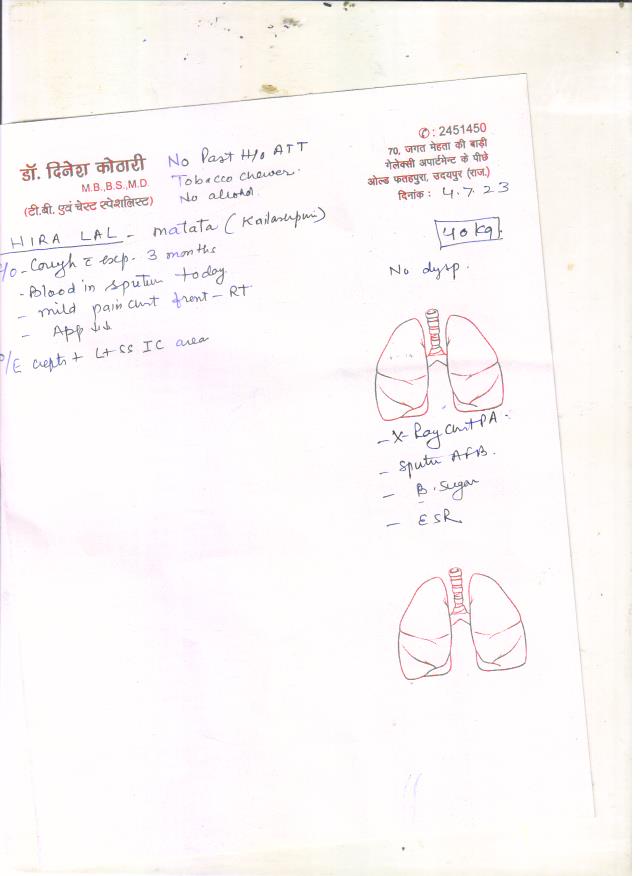 डॉ. दिनेश कोठारी
M.B.,B.S.,M.D.
(टी.बी. एवं चेस्ट स्पेशलिस्ट)
No Past H/o ATT
Tobacco chewer.
No alcohol.
✆: 2451450
70, जगत मेहता की बाड़ी
गेलेक्सी अपार्टमेन्ट के पीछे
ओल्ड फतहपुरा, उदयपुर (राज.)
दिनांक : 4.7.23
HIRA LAL - matata (Kailashpuri)
40 kg
C/o - Cough c̄ exp. 3 months
- Blood in sputum today
- mild pain chest front - RT
- App ↓↓
No dysp.
O/E crepts + Lt SS IC area
- X-Ray Chest PA.
- Sputum AFB.
- B. Sugar
- ESR